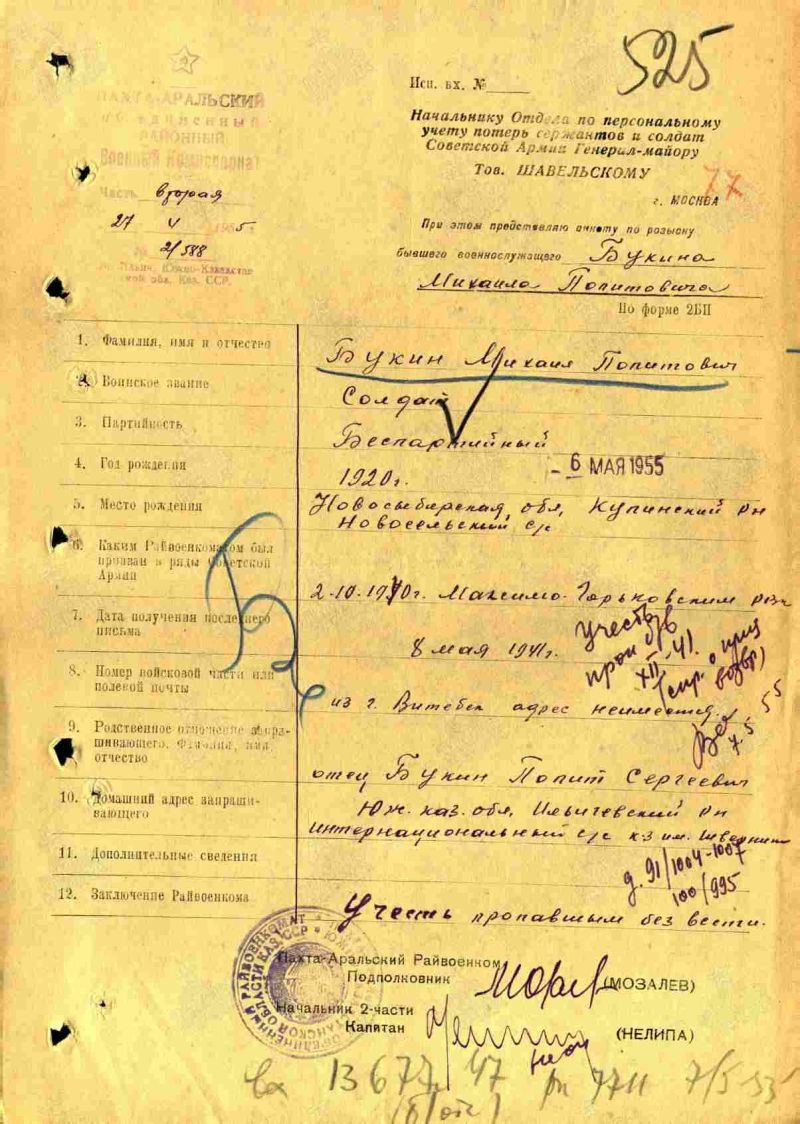 525
ПАХТА-АРАЛЬСКИЙ
объединенный
РАЙОННЫЙ
Военный Комиссариат
Часть вторая
27 V 1955
№ 2/588
Ильич, Южно-Казахстан
ской обл. Каз. ССР.
Исп. вх. №
Начальнику Отдела по персональному
учету потерь сержантов и солдат
Советской Армии Генерал-майору
Тов. ШАВЕЛЬСКОМУ
77
г. МОСКВА
При этом представляю анкету по розыску
бывшего военнослужащего Букина
Михаила Попитовича
По форме 2БП
1. Фамилия, имя и отчество
Букин Михаил Попитович
2. Воинское звание
Солдат
3. Партийность
Беспартийный
4. Год рождения
1920г.
- 6 МАЯ 1955
5. Место рождения
Новосибирская обл, Купинский рн
Новосельский с/с
6. Каким Райвоенкоматом был
призван в ряды Советской
Армии
2-10-1940г. Максимо-Горьковским рвк
7. Дата получения последнего
письма
8 мая 1941г.
учесть
проп б/в
XII-41.
(спр. о
возвр)
8. Номер войсковой части или
полевой почты
из г. Витебск адрес неимеется.
7.5.55
9. Родственное отношение запра-
шивающего. Фамилия, имя
отчество
отец Букин Попит Сергеевич
10. Домашний адрес запраши-
вающего
Юж. каз. обл, Ильичевский рн
интернациональный с/с к-з им. Шверника
11. Дополнительные сведения
д. 91/1004-1007
100/995
12. Заключение Райвоенкома
Учесть пропавшим без вести.
Пахта-Аральский Райвоенком
Подполковник
(МОЗАЛЕВ)
Начальник 2-части
Капитан
(НЕЛИПА)
вх 13677 47 7711 7/5-55